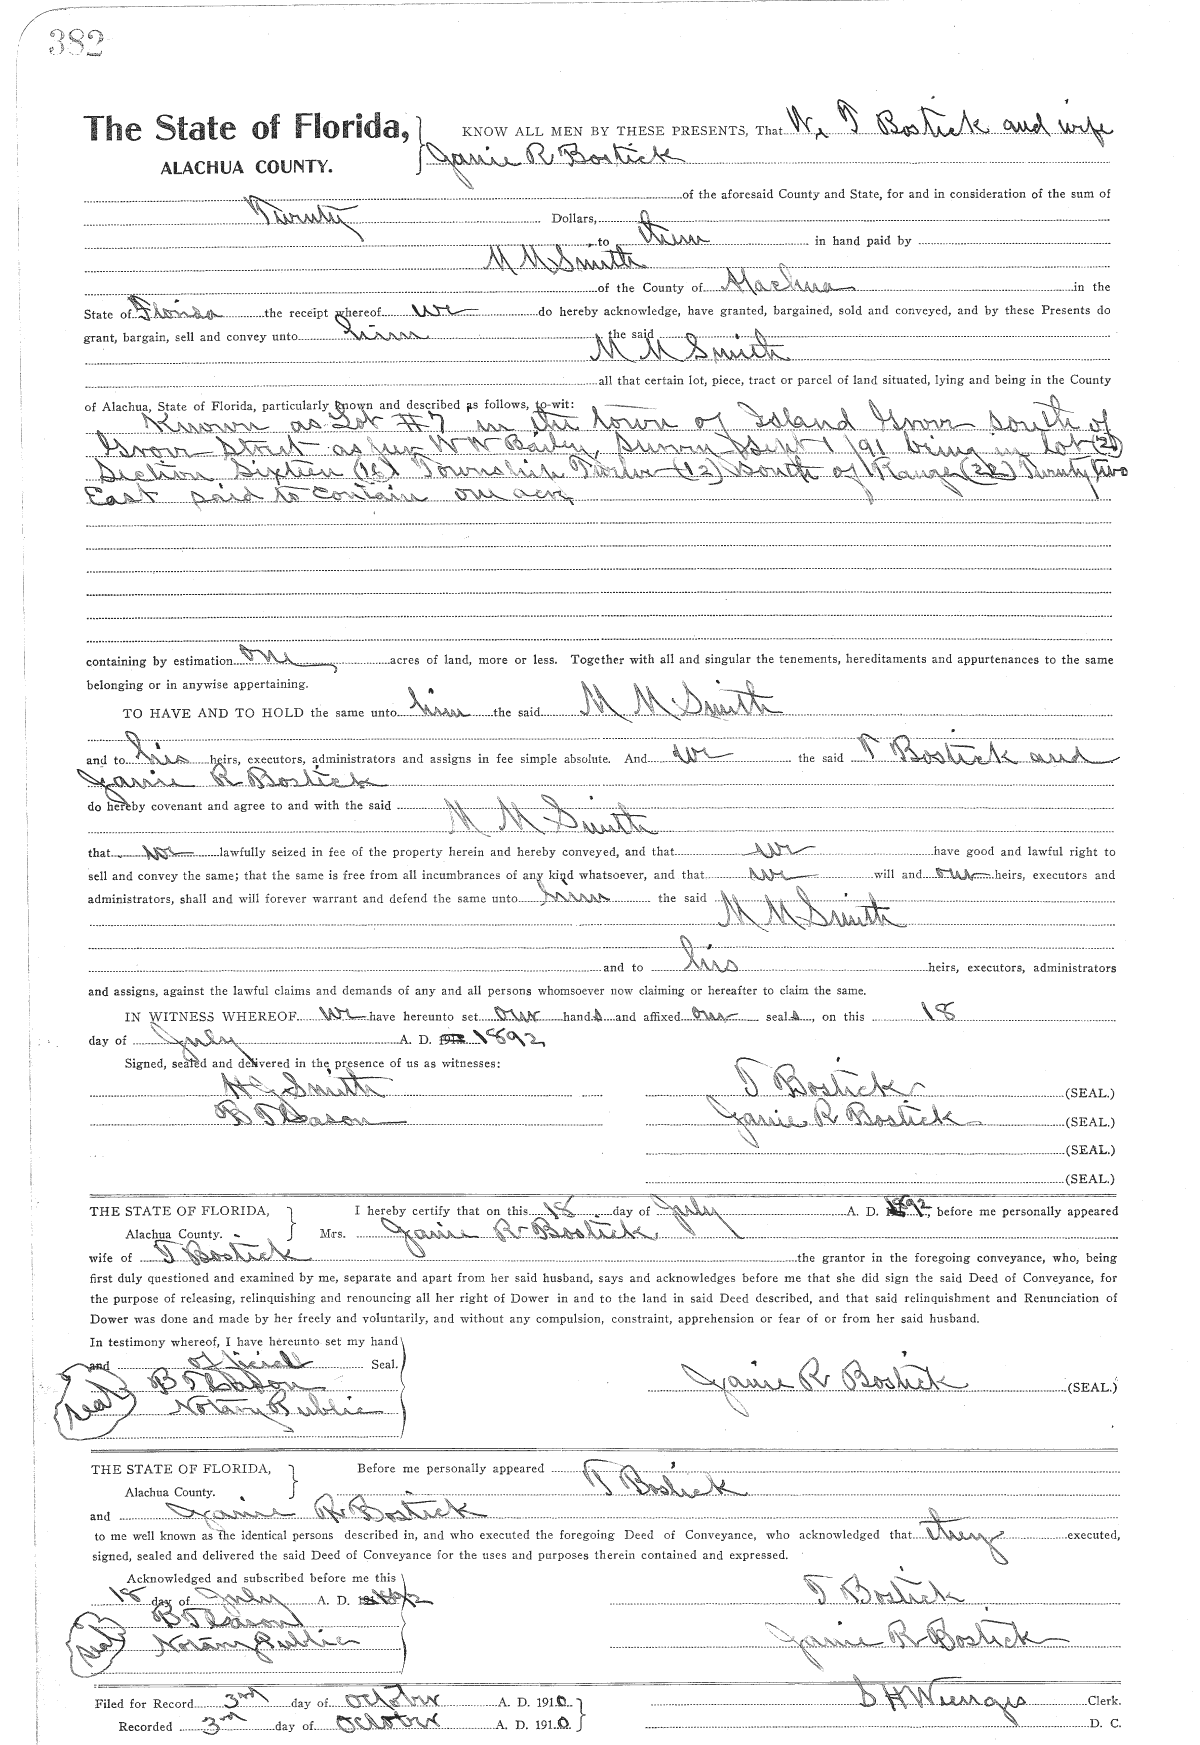 382
The State of Florida, } KNOW ALL MEN BY THESE PRESENTS, That We T Bostick and wife
ALACHUA COUNTY. Janie R Bostick
of the aforesaid County and State, for and in consideration of the sum of
Twenty Dollars,
to them in hand paid by
M M Smith
of the County of Alachua in the
State of Florida the receipt whereof we do hereby acknowledge, have granted, bargained, sold and conveyed, and by these Presents do
grant, bargain, sell and convey unto him the said
M M Smith
all that certain lot, piece, tract or parcel of land situated, lying and being in the County
of Alachua, State of Florida, particularly known and described as follows, to-wit:
Known as Lot #7 in the town of Island Grove South of
Grove Street as per W W Baily, Survey Sept 1/91 being in lot (2)
Section Sixteen (16) Township Twelve (12) South of Range (22) Twenty two
East said to contain one acre
containing by estimation one acres of land, more or less. Together with all and singular the tenements, hereditaments and appurtenances to the same
belonging or in anywise appertaining.
TO HAVE AND TO HOLD the same unto him the said M M Smith
and to his heirs, executors, administrators and assigns in fee simple absolute. And we the said T Bostick and
Janie R Bostick
do hereby covenant and agree to and with the said
M M Smith
that we lawfully seized in fee of the property herein and hereby conveyed, and that we have good and lawful right to
sell and convey the same; that the same is free from all incumbrances of any kind whatsoever, and that we will and our heirs, executors and
administrators, shall and will forever warrant and defend the same unto him the said
M M Smith
and to his heirs, executors, administrators
and assigns, against the lawful claims and demands of any and all persons whomsoever now claiming or hereafter to claim the same.
IN WITNESS WHEREOF we have hereunto set our hands and affixed our seals, on this 18
day of July A. D. 1892
Signed, sealed and delivered in the presence of us as witnesses:
H G Smith T Bostick (SEAL.)
B T Eason Janie R Bostick (SEAL.)
(SEAL.)
(SEAL.)
THE STATE OF FLORIDA, } I hereby certify that on this 18 day of July A. D. 1892, before me personally appeared
Alachua County. Mrs. Janie R Bostick
wife of T Bostick the grantor in the foregoing conveyance, who, being
first duly questioned and examined by me, separate and apart from her said husband, says and acknowledges before me that she did sign the said Deed of Conveyance, for
the purpose of releasing, relinquishing and renouncing all her right of Dower in and to the land in said Deed described, and that said relinquishment and Renunciation of
Dower was done and made by her freely and voluntarily, and without any compulsion, constraint, apprehension or fear of or from her said husband.
In testimony whereof, I have hereunto set my hand
and official Seal.
B T Eason Janie R Bostick (SEAL.)
seal Notary Public
THE STATE OF FLORIDA, } Before me personally appeared
Alachua County. T Bostick
and Janie R Bostick
to me well known as the identical persons described in, and who executed the foregoing Deed of Conveyance, who acknowledged that they executed,
signed, sealed and delivered the said Deed of Conveyance for the uses and purposes therein contained and expressed.
Acknowledged and subscribed before me this
18 day of July A. D. 1892 T Bostick
B T Eason
seal Notary Public Janie R Bostick
Filed for Record 3rd day of October A. D. 1910 S H Wienges Clerk.
Recorded 3rd day of October A. D. 1910 D. C.